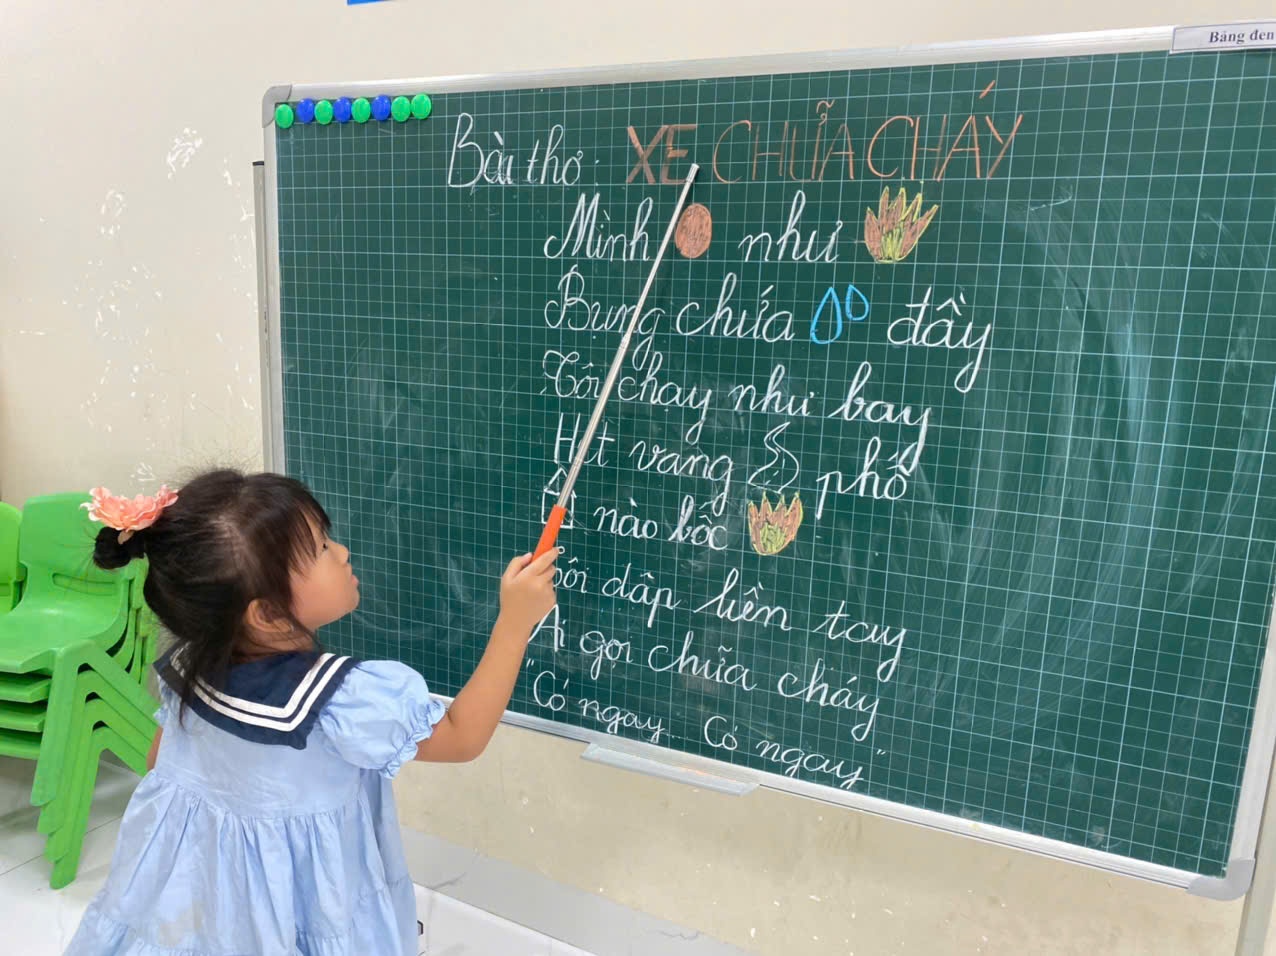 Bảng đen
Bài thơ: XE CHỮA CHÁY
Mình như
Bụng chứa đầy
Tôi chạy như bay
Hét vang phố
nào bốc
Tôi dập liền tay
Ai gọi chữa cháy
"Có ngay... Có ngay"